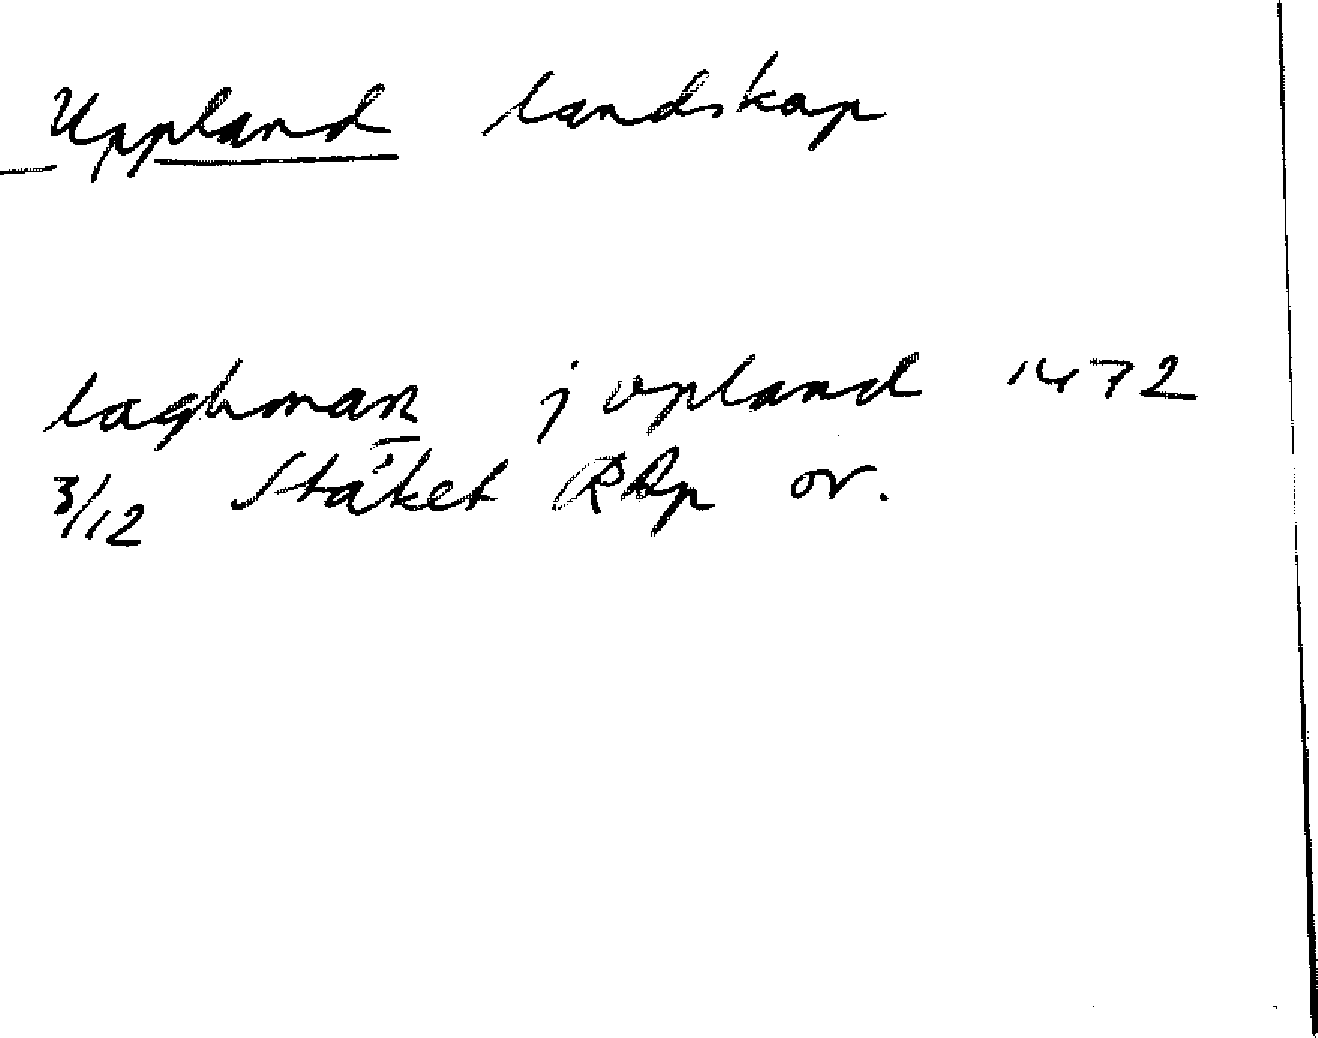 Uppland landskap
laghman j vpland 1472
3/12 Stäket RAp or.